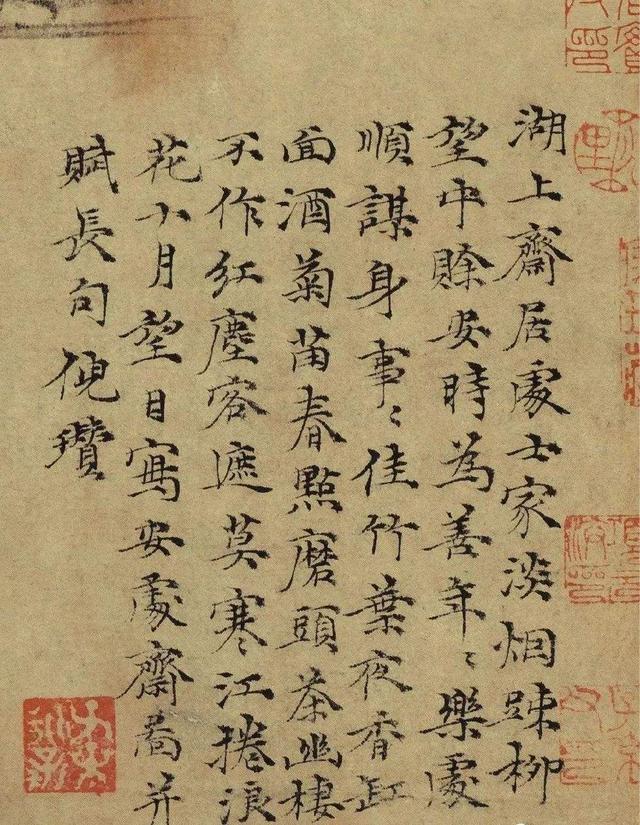 湖上齋居處士家淡烟踈柳
望中賖安時為善年〻樂處
順謀身事〻佳竹葉夜香缸
面酒菊苗春點磨頭茶幽棲
不作紅塵客遮莫寒江捲浪
花十月望日寫安處齋啚并
賦長句倪瓚